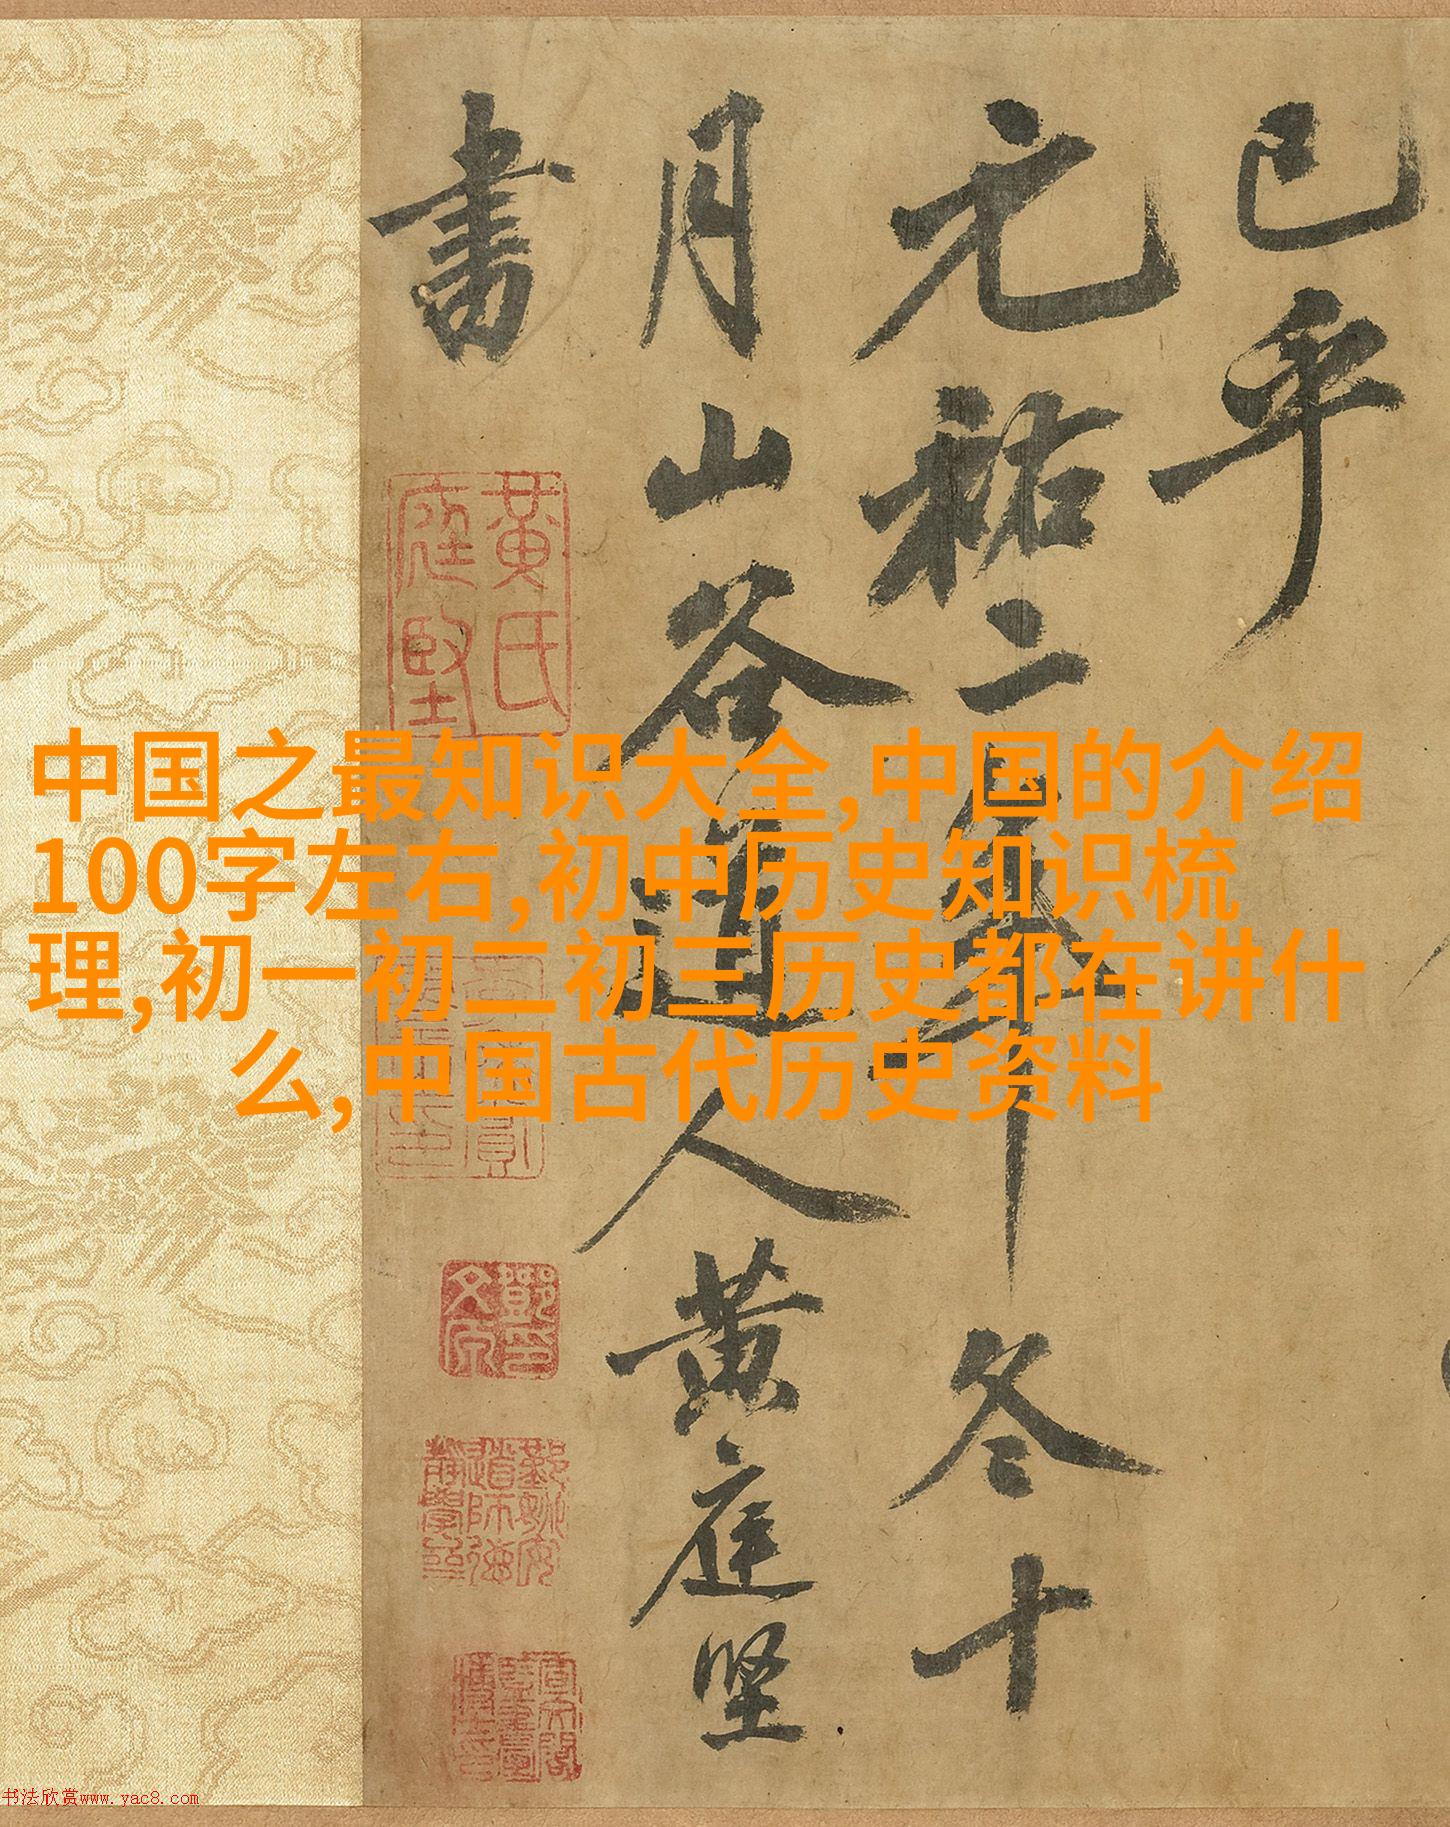 已乎
元祐二年冬十
月山谷道人黄庭坚
書
黄氏
庭堅
中国之最知识大全,中国的介绍
100字左右,初中历史知识梳
理,初一初二初三历史都在讲什
么,中国古代历史资料
书法欣赏www.yac8.com